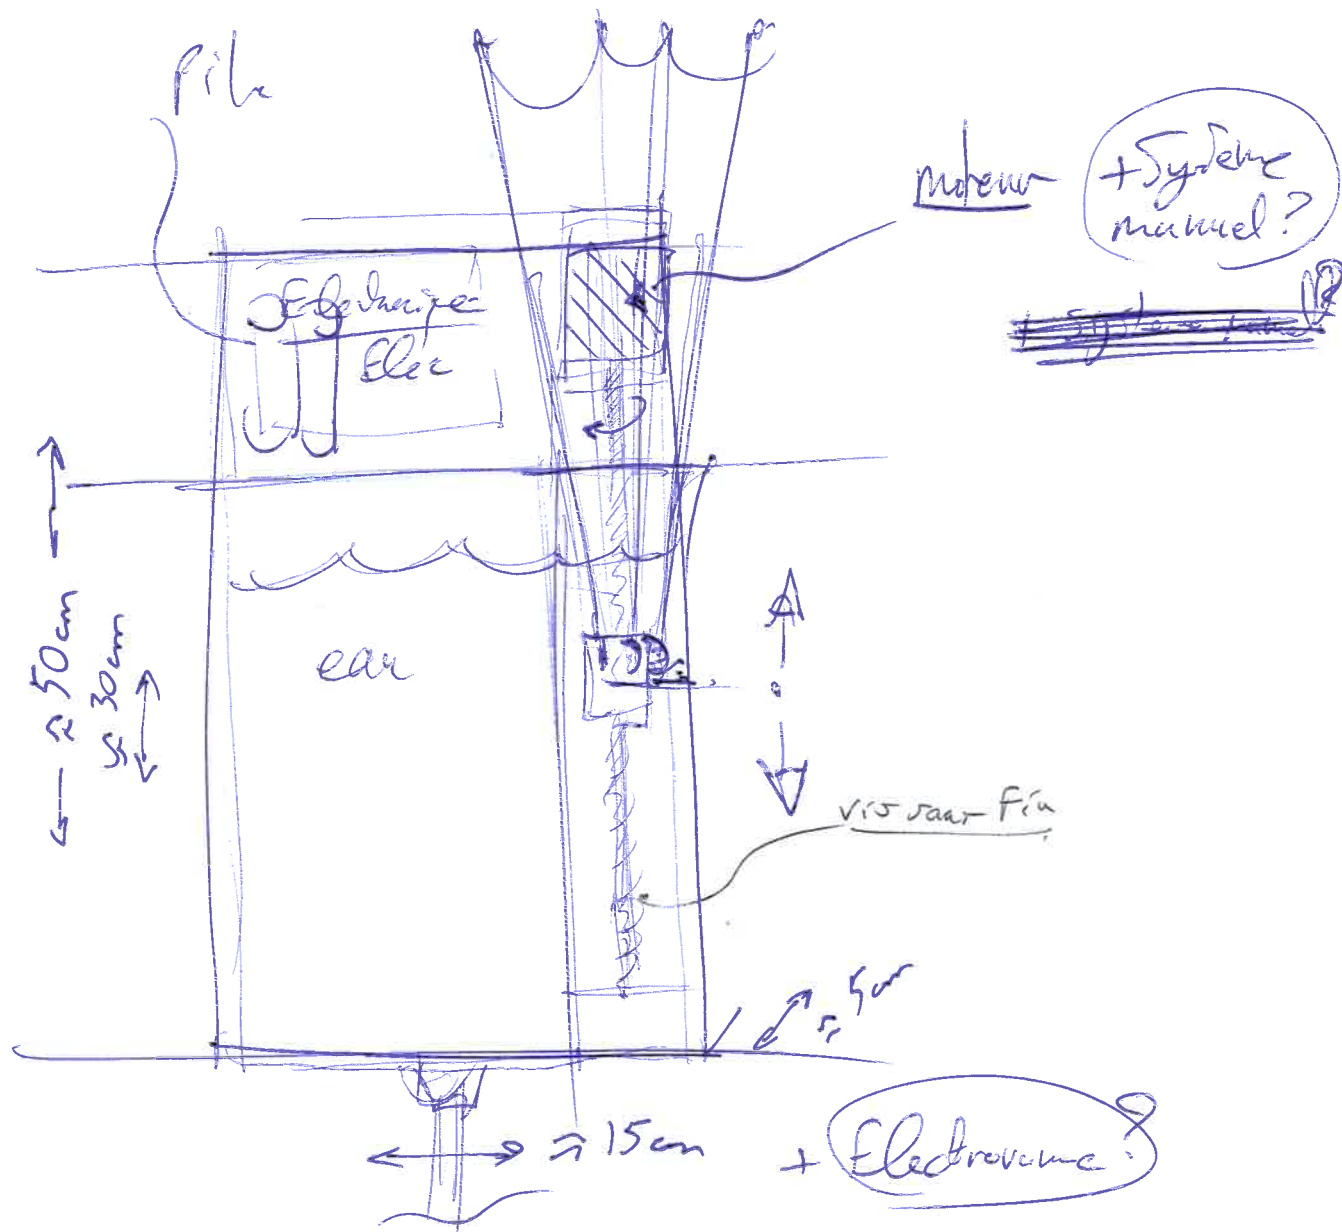 Pile
moteur
+ Système
manuel?
Electronique
Elec
≈ 50cm
≈ 30cm
eau
vis sans fin
≈ 5cm
≈ 15cm
+ Electrovanne?